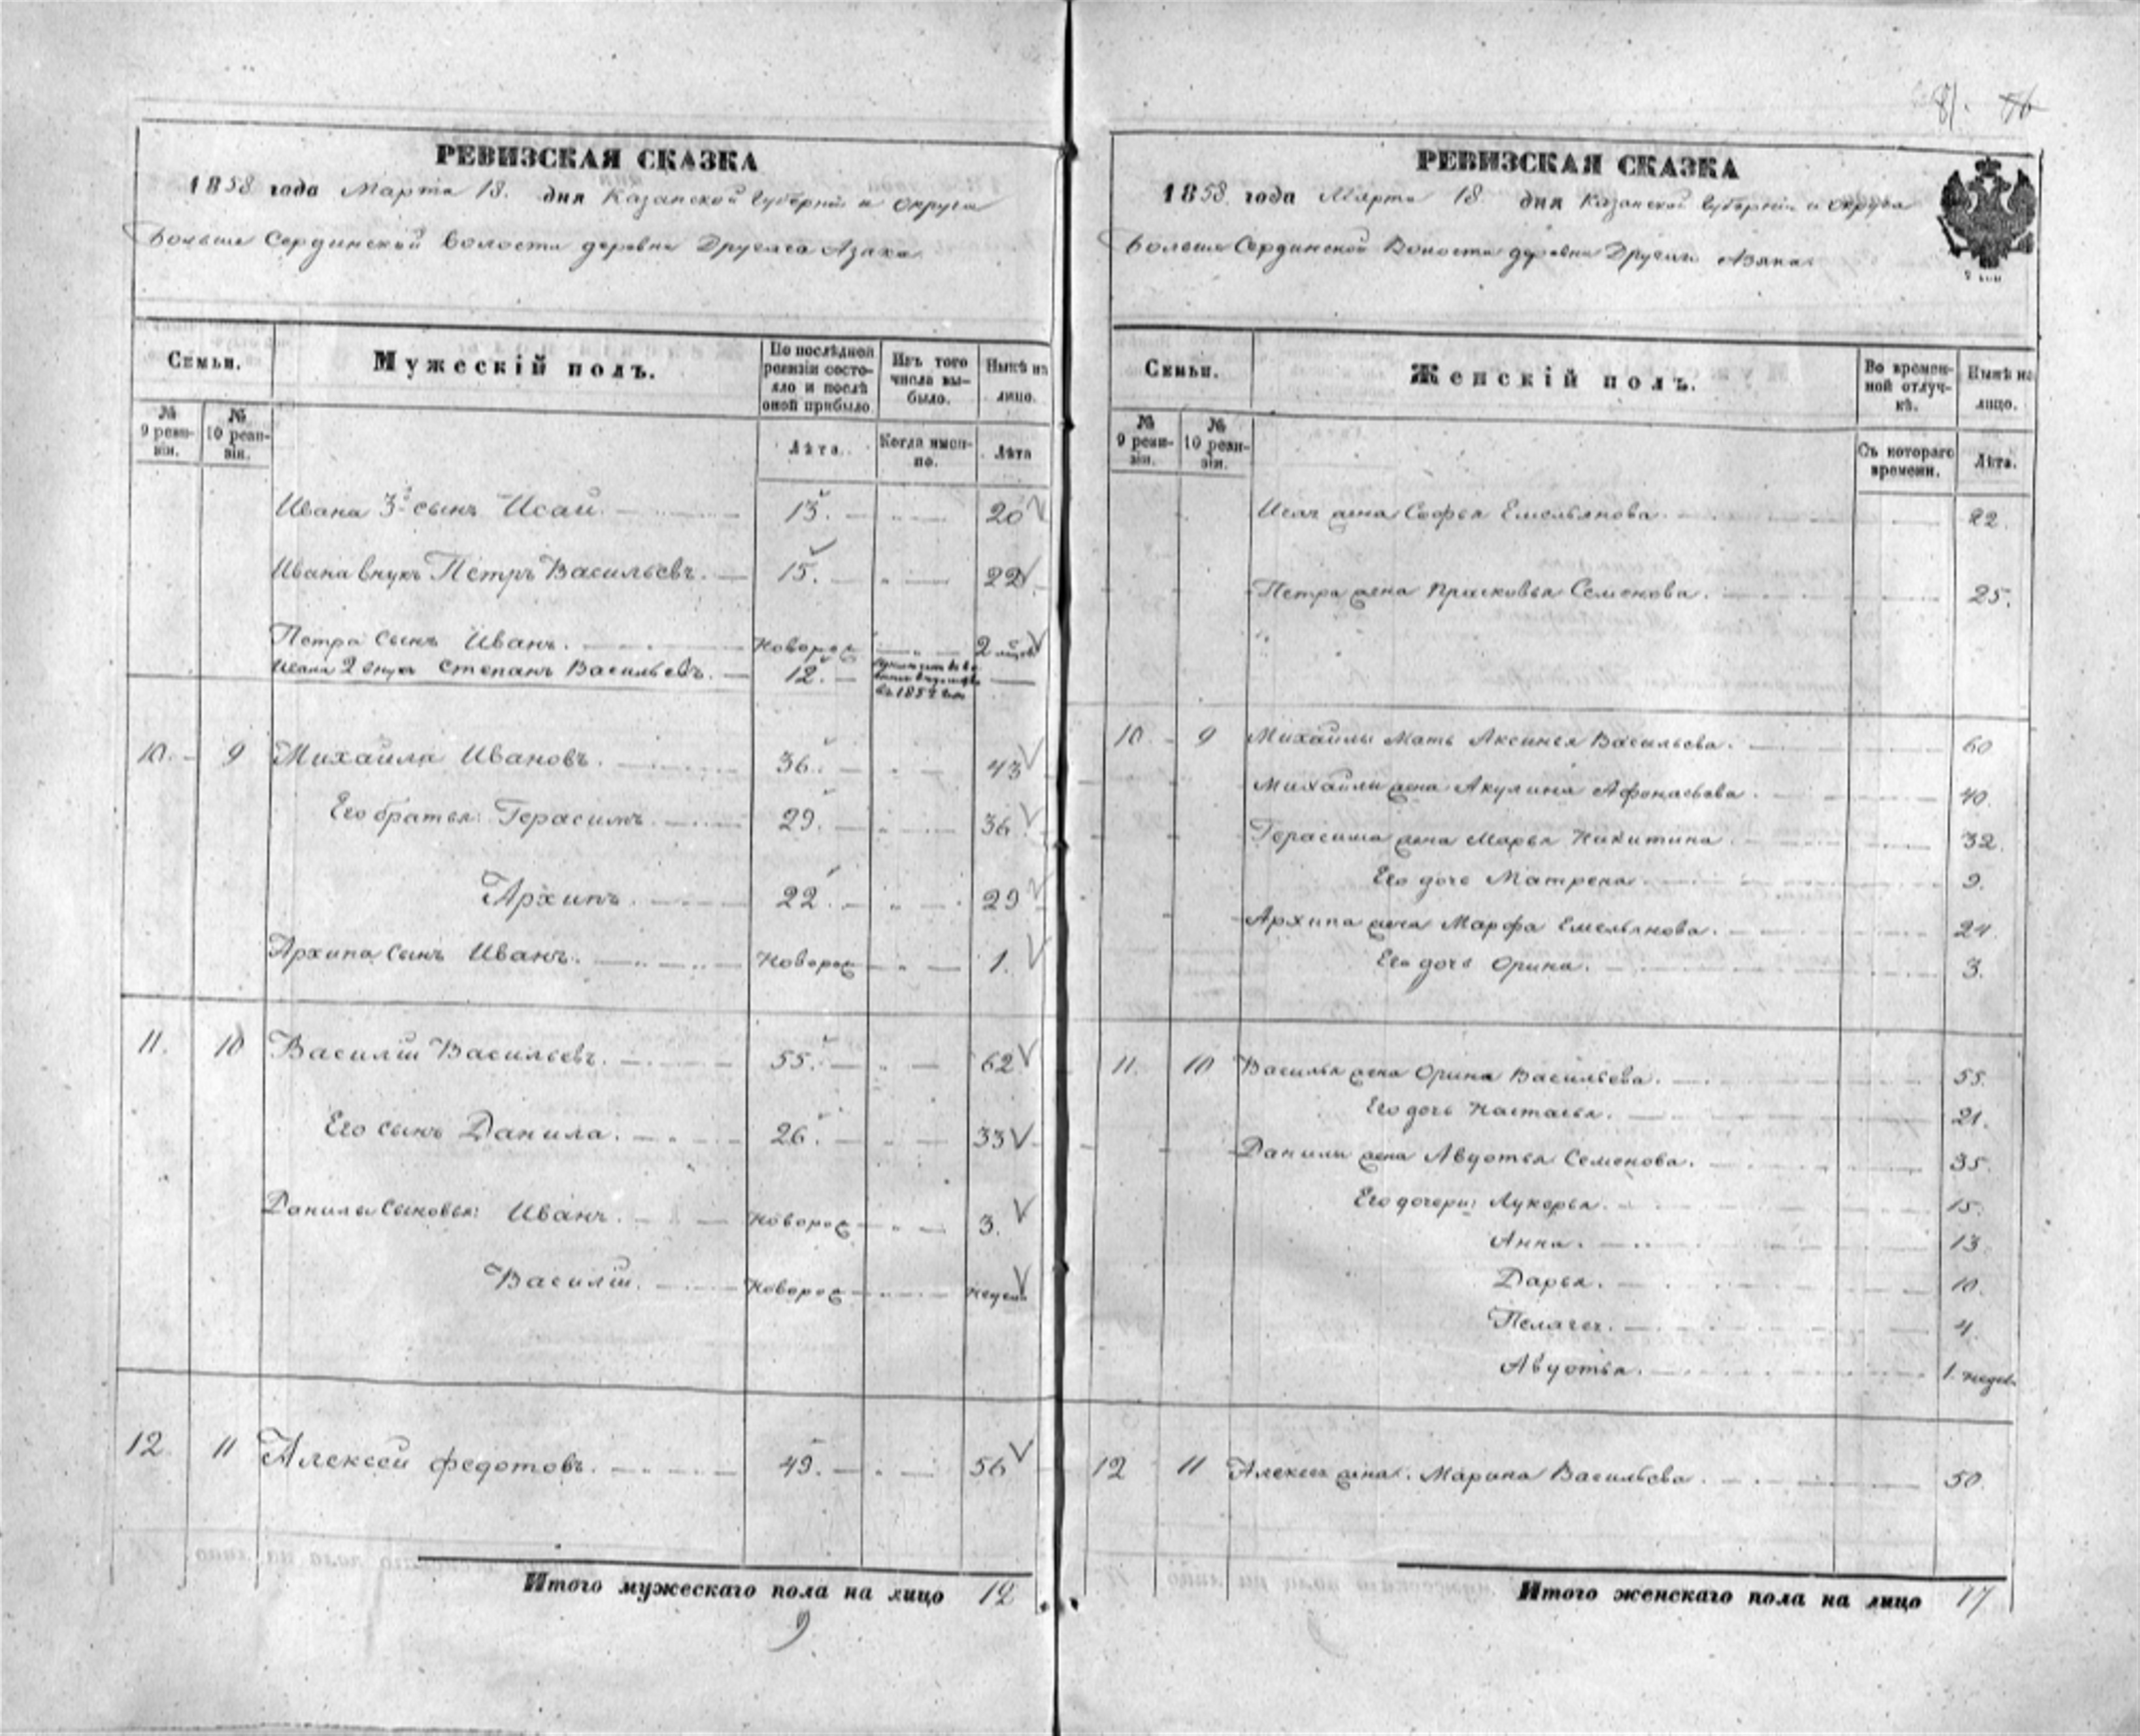 81. 86
РЕВИЗСКАЯ СКАЗКА
1858 года Марта 18. дня Казанской Губерніи и округа
Больше Сердинской волости деревни Другаго Азяка
Семьи.
Мужескій полъ.
По послѣдней ревизіи состояло и послѣ оной прибыло.
Изъ того числа выбыло.
Нынѣ на лицо.
№ 9 ревизіи.
№ 10 ревизіи.
Лѣта.
Когда именно.
Лѣта
Ивана 3й сынъ Исай. 13. 20
Ивана внукъ Петръ Васильевъ. 15. 22
Петра сынъ Иванъ. Новорож 2
Ивана 2 внукъ Степанъ Васильевъ. 12. въ 1852
10. 9 Михайла Ивановъ. 36. 43
Его братья: Герасимъ 29. 36
Архипъ. 22. 29
Архипа сынъ Иванъ. Новорож 1.
11. 10 Василій Васильевъ. 55. 62
Его сынъ Данила. 26. 33
Данилы сыновья: Иванъ. Новорож 3.
Василій. Новорож недели
12 11 Алексей Федотовъ. 49. 56
Итого мужескаго пола на лицо 12
9
РЕВИЗСКАЯ СКАЗКА
1858. года Марта 18. дня Казанской Губерніи и округа
Больше Сердинской Волости деревни Другаго Азяка
Семьи.
Женскій полъ.
Во временной отлучкѣ.
Нынѣ на лицо.
№ 9 ревизіи.
№ 10 ревизіи.
Съ котораго времени.
Лѣта.
Исая жена Софья Емельянова. 22.
Петра жена Прасковья Семенова. 25.
10 9 Михайлы Мать Аксинья Васильева. 60
Михайлы жена Акулина Афонасьева. 40.
Герасима жена Марья Никитина 32.
Его дочь Матрена. 9.
Архипа жена Марфа Емельянова. 24.
Его дочь Орина. 3.
11. 10 Василья жена Орина Васильева. 55.
Его дочь Настасья. 21.
Данилы жена Авдотья Семенова. 35.
Его дочери: Лукерья. 15.
Анна. 13.
Дарья. 10.
Пелагея. 4.
Авдотья. 1. недел.
12 11 Алексея жена. Марина Васильева. 50.
Итого женскаго пола на лицо 17